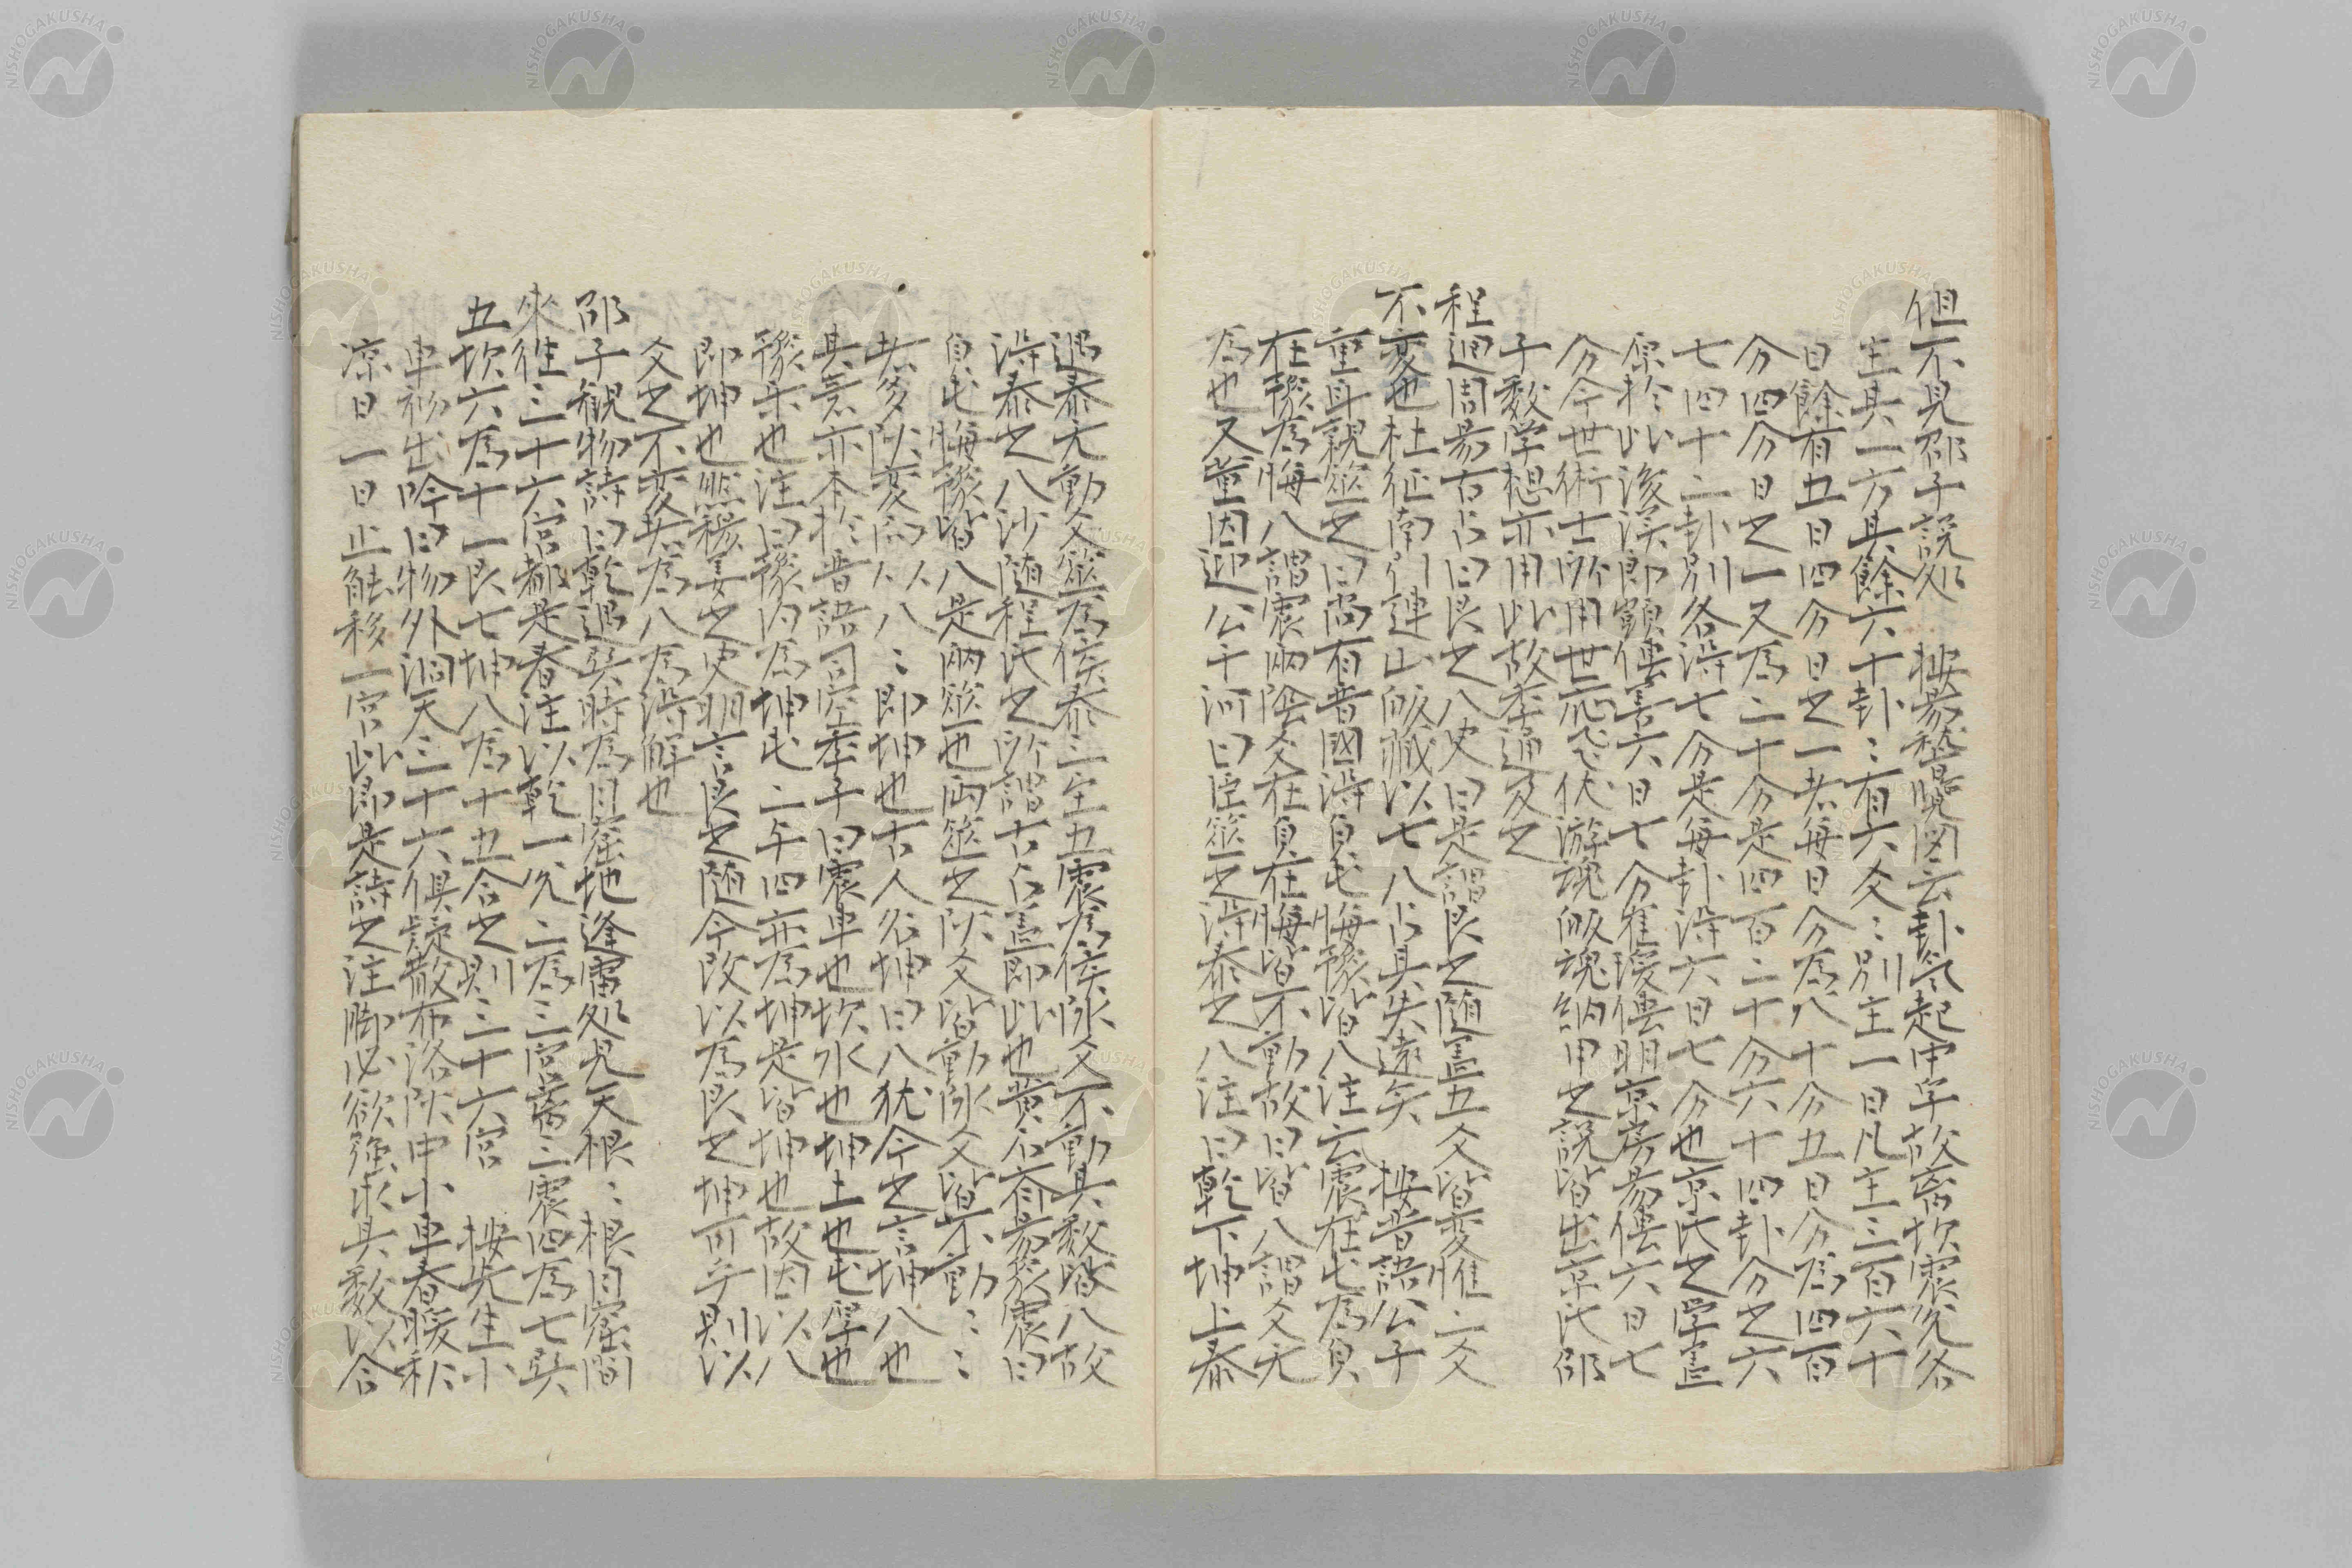 但不見邵子說処　按易稽覧図云卦气起中孚故离坎震兌各
主其一方其餘六十卦〻有六爻〻別主一日凡主三百六十
日餘有五日四分日之一者每日分爲八十分五日分爲四百
分四分日之一又爲二十分是四百二十分六十四卦分之六
七四十二卦別各得七分是每卦得六日七分也京氏之学蓋
原於此後漢郎顗傳言六日七分崔瑗傳明京房易傳六日七
分今世術士所用世応飞伏游魂皈魂納甲之說皆出京氏邵
子数学想亦用此故季通及之
程迥周易古占曰艮之八史曰是謂艮之随蓋五爻皆変惟二爻
不変也杜征南引連山皈藏以七八占其失遠矣　按晋語公子
重耳親筮之曰尚有晋國得貞屯悔豫皆八注云震在屯爲貞
在豫爲悔八謂震兩陰爻在貞在悔皆不動故曰皆八謂爻无
爲也又董因迎公于河曰臣筮之得泰之八注曰乾下坤上泰
遇泰无動爻筮爲侯泰三至五震爲侯陰爻不動其数皆八故
得泰之八沙随程氏之所謂古占蓋即此也黄石斎易象震曰
貞屯悔豫皆八是兩筮也兩筮之陽爻皆動陰爻皆不動〻〻
者多陽変而从八〻即坤也古人名坤曰八犹今之言坤八也
其意亦本於晋語司空季子曰震車也坎水也坤土也屯厚也
豫乐也注曰豫内爲坤屯二午四亦爲坤是皆坤也故因以八
即坤也然穆姜之史明言艮之随今改以爲艮之坤可乎則以
爻之不変者爲八爲得解也
邵子観物詩曰乾遇巽時爲月窟地逢雷処見天根〻根月窟間
來徃三十六宮都是春注以乾一兌二爲三宮离三震四爲七巽
五坎六爲十一艮七坤八爲十五合之則三十六宮　按先生小
車初出吟曰物外洞天三十六俱疑散布洛陽中小車春暖秋
凉日一日止能移一宮此即是詩之注脚必欲强求其数以合